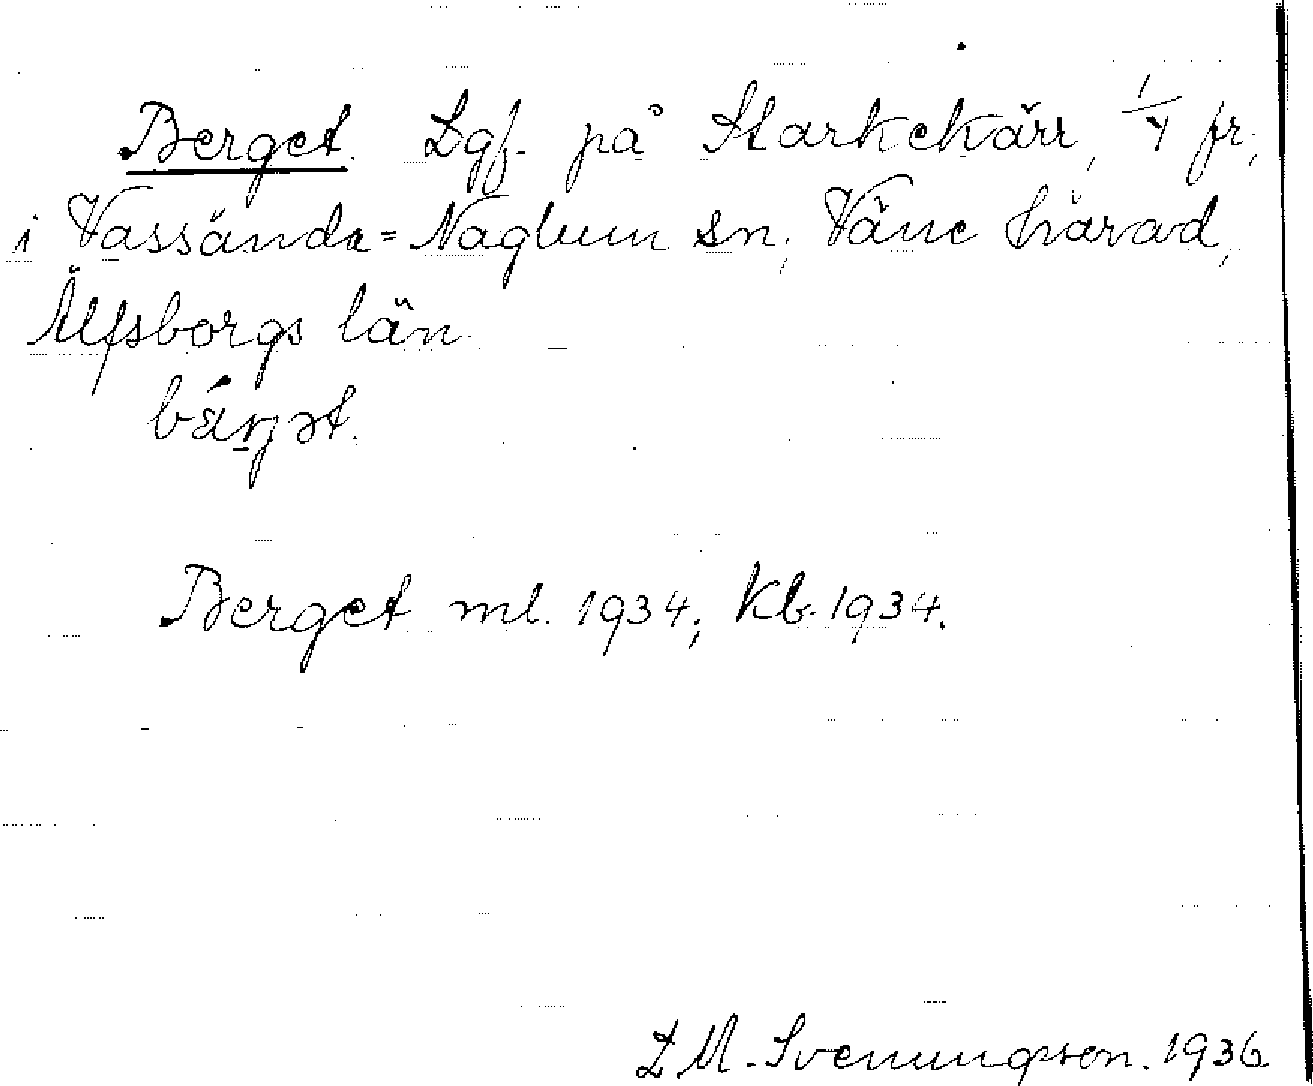 Berget. Lgf. på Starkekärr, 1/4 fr,
i Vassända=Naglum sn, Väne härad,
Älfsborgs län
Berget ml. 1934; Kb. 1934.
L M. Svenungson. 1936